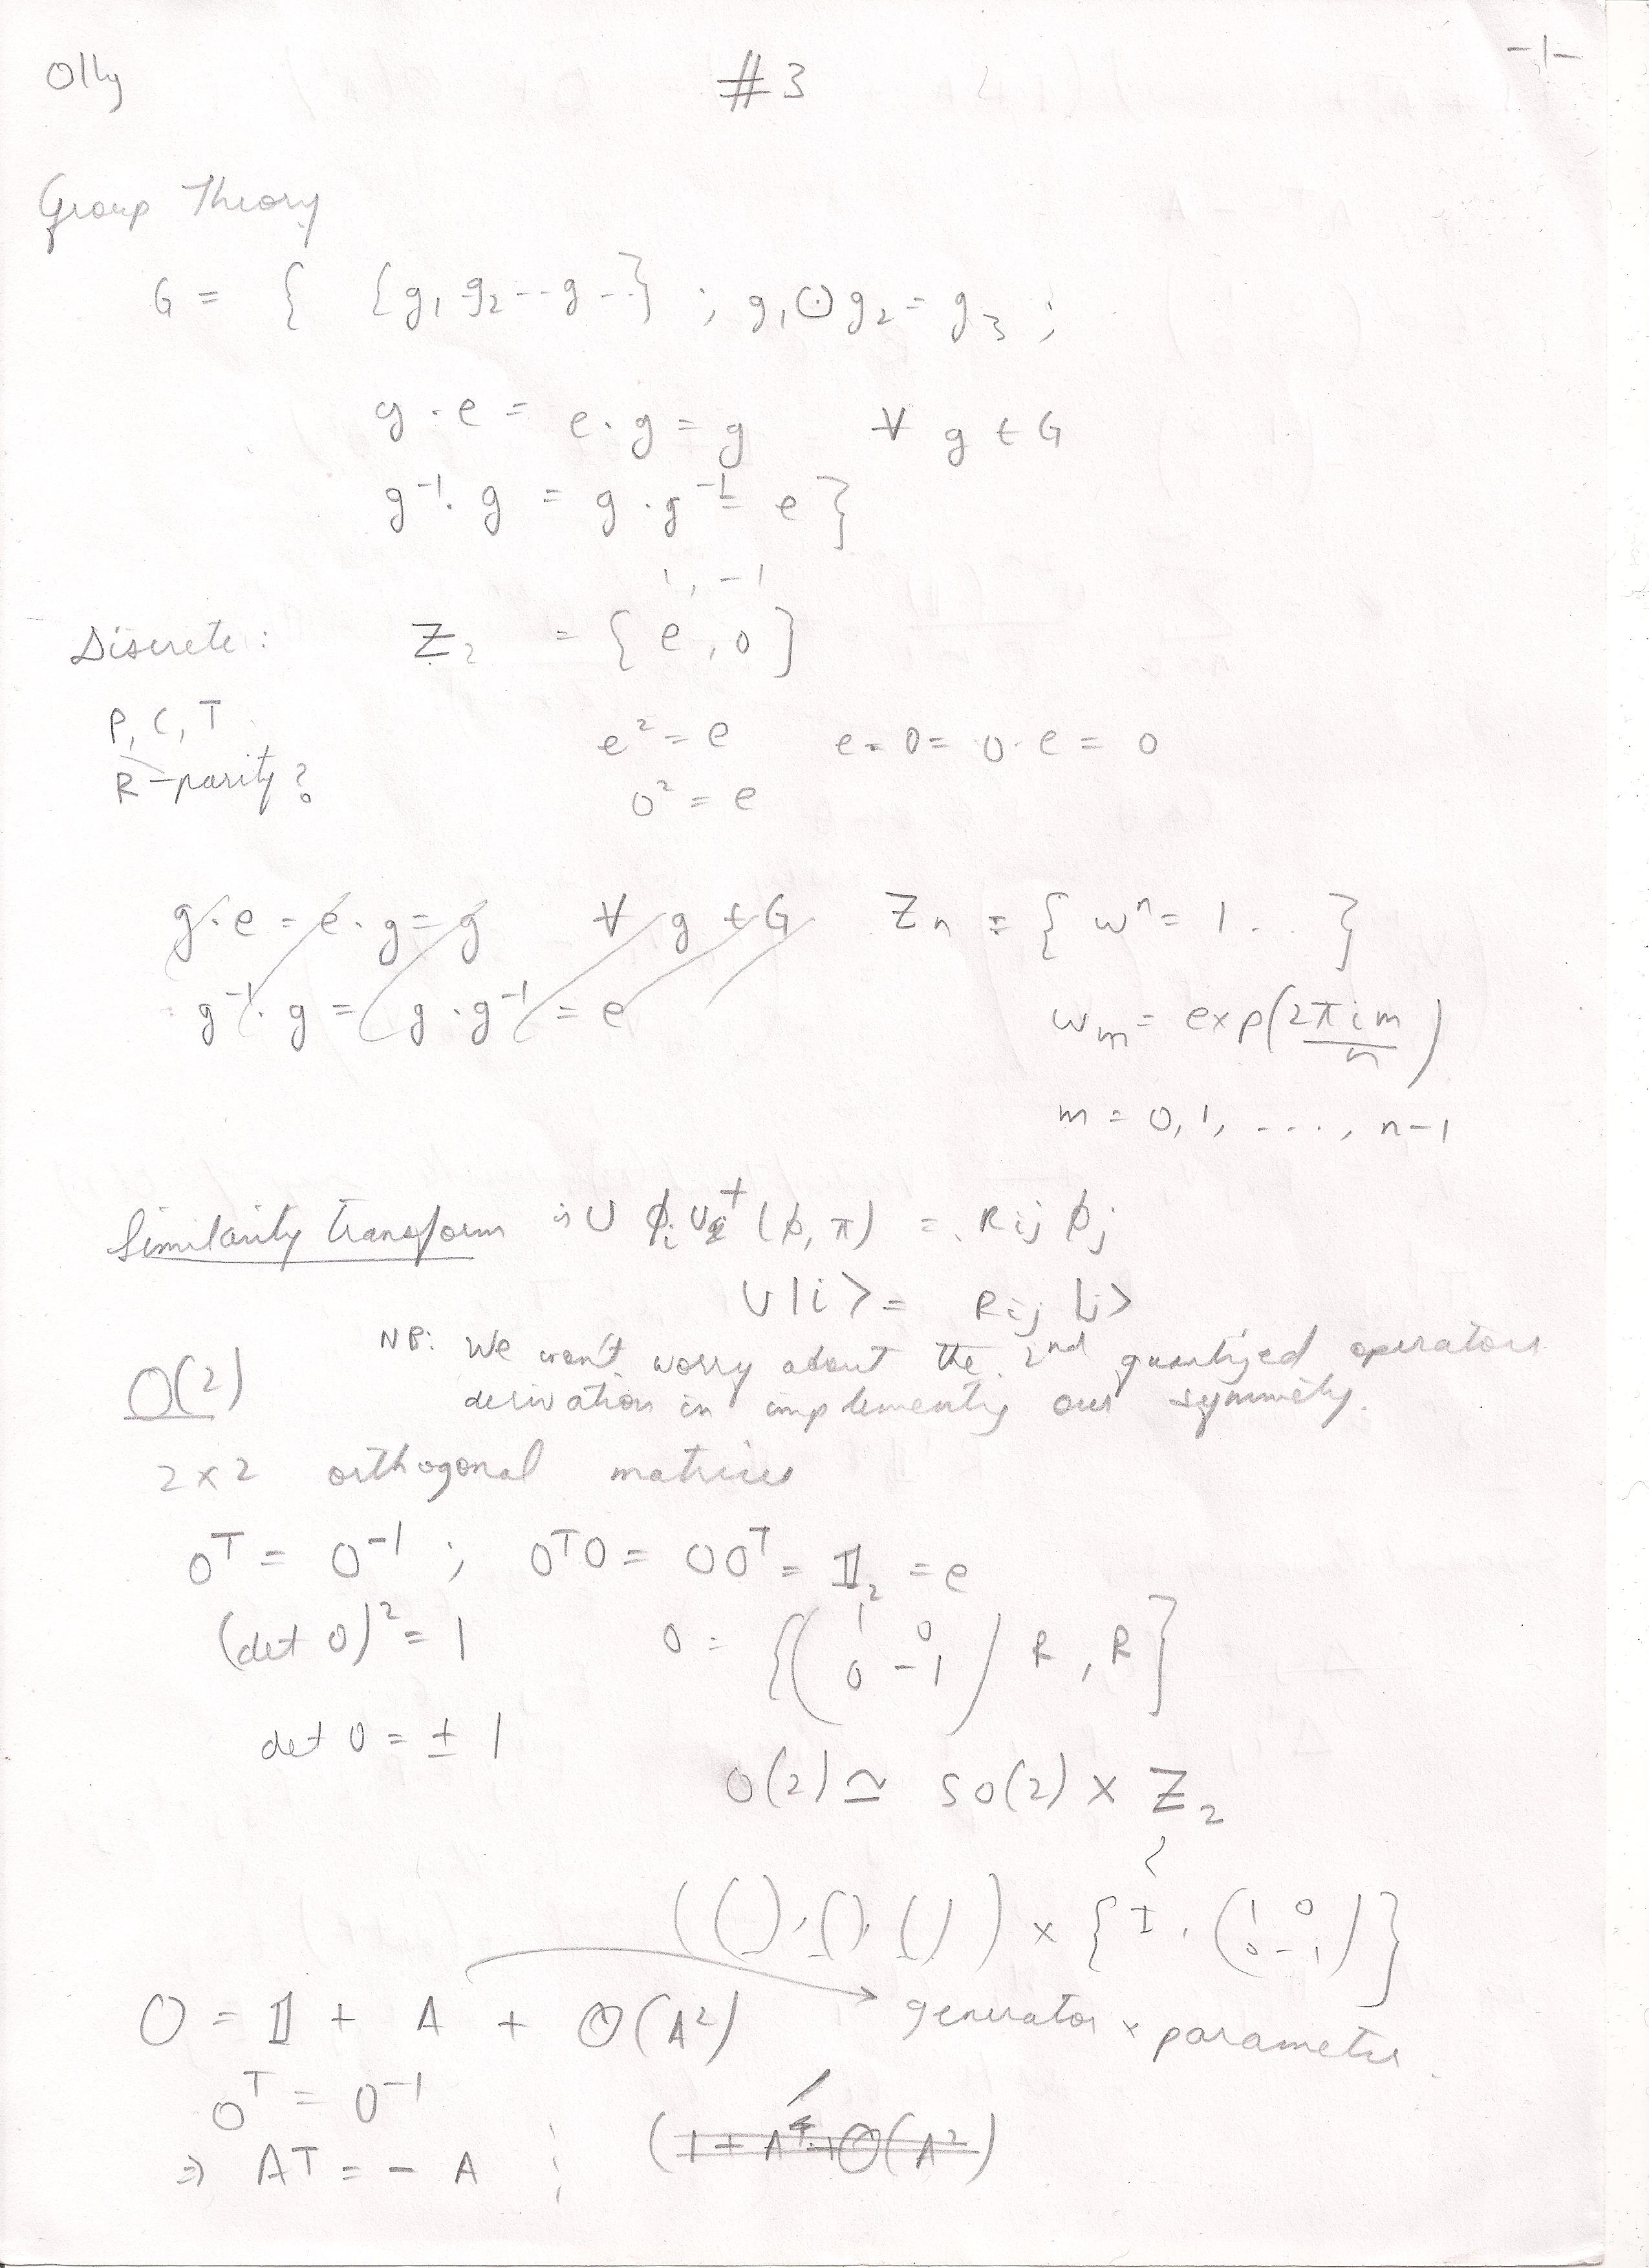 Olly #3 -1-
Group Theory
G = { {g1 g2 -- g --} ; g1 ⊙ g2 = g3 ;
g · e = e · g = g ∀ g ∈ G
g^-1 · g = g · g^-1 = e }
1, -1
Discrete: Z2 = { e, o }
P, C, T e^2 = e e · o = o · e = o
R-parity? o^2 = e
g · e = e · g = g ∀ g ∈ G Zn = { w^n = 1 . . }
g^-1 · g = g · g^-1 = e wm = exp(2πim/n)
m = 0, 1, ...., n-1
Similarity transform is U ϕi U^† (ϕ, π) = Rij ϕj
U|i> = Rij |j>
NB: We won't worry about the 2nd quantized operators
O(2) derivation in implementing our symmetry.
2 x 2 orthogonal matrices
O^T = O^-1 ; O^T O = O O^T = 𝟙2 = e
(det O)^2 = 1 O = {(1 0 0 -1) R, R}
det O = ± 1
O(2) ≃ SO(2) x Z2
(( ), ( ), ( )) x {I, (1 0 0 -1)}
O = 𝟙 + A + O(A^2) → generator x parameter
O^T = O^-1
⇒ A^T = - A ; (1 + A^T + O(A^2)